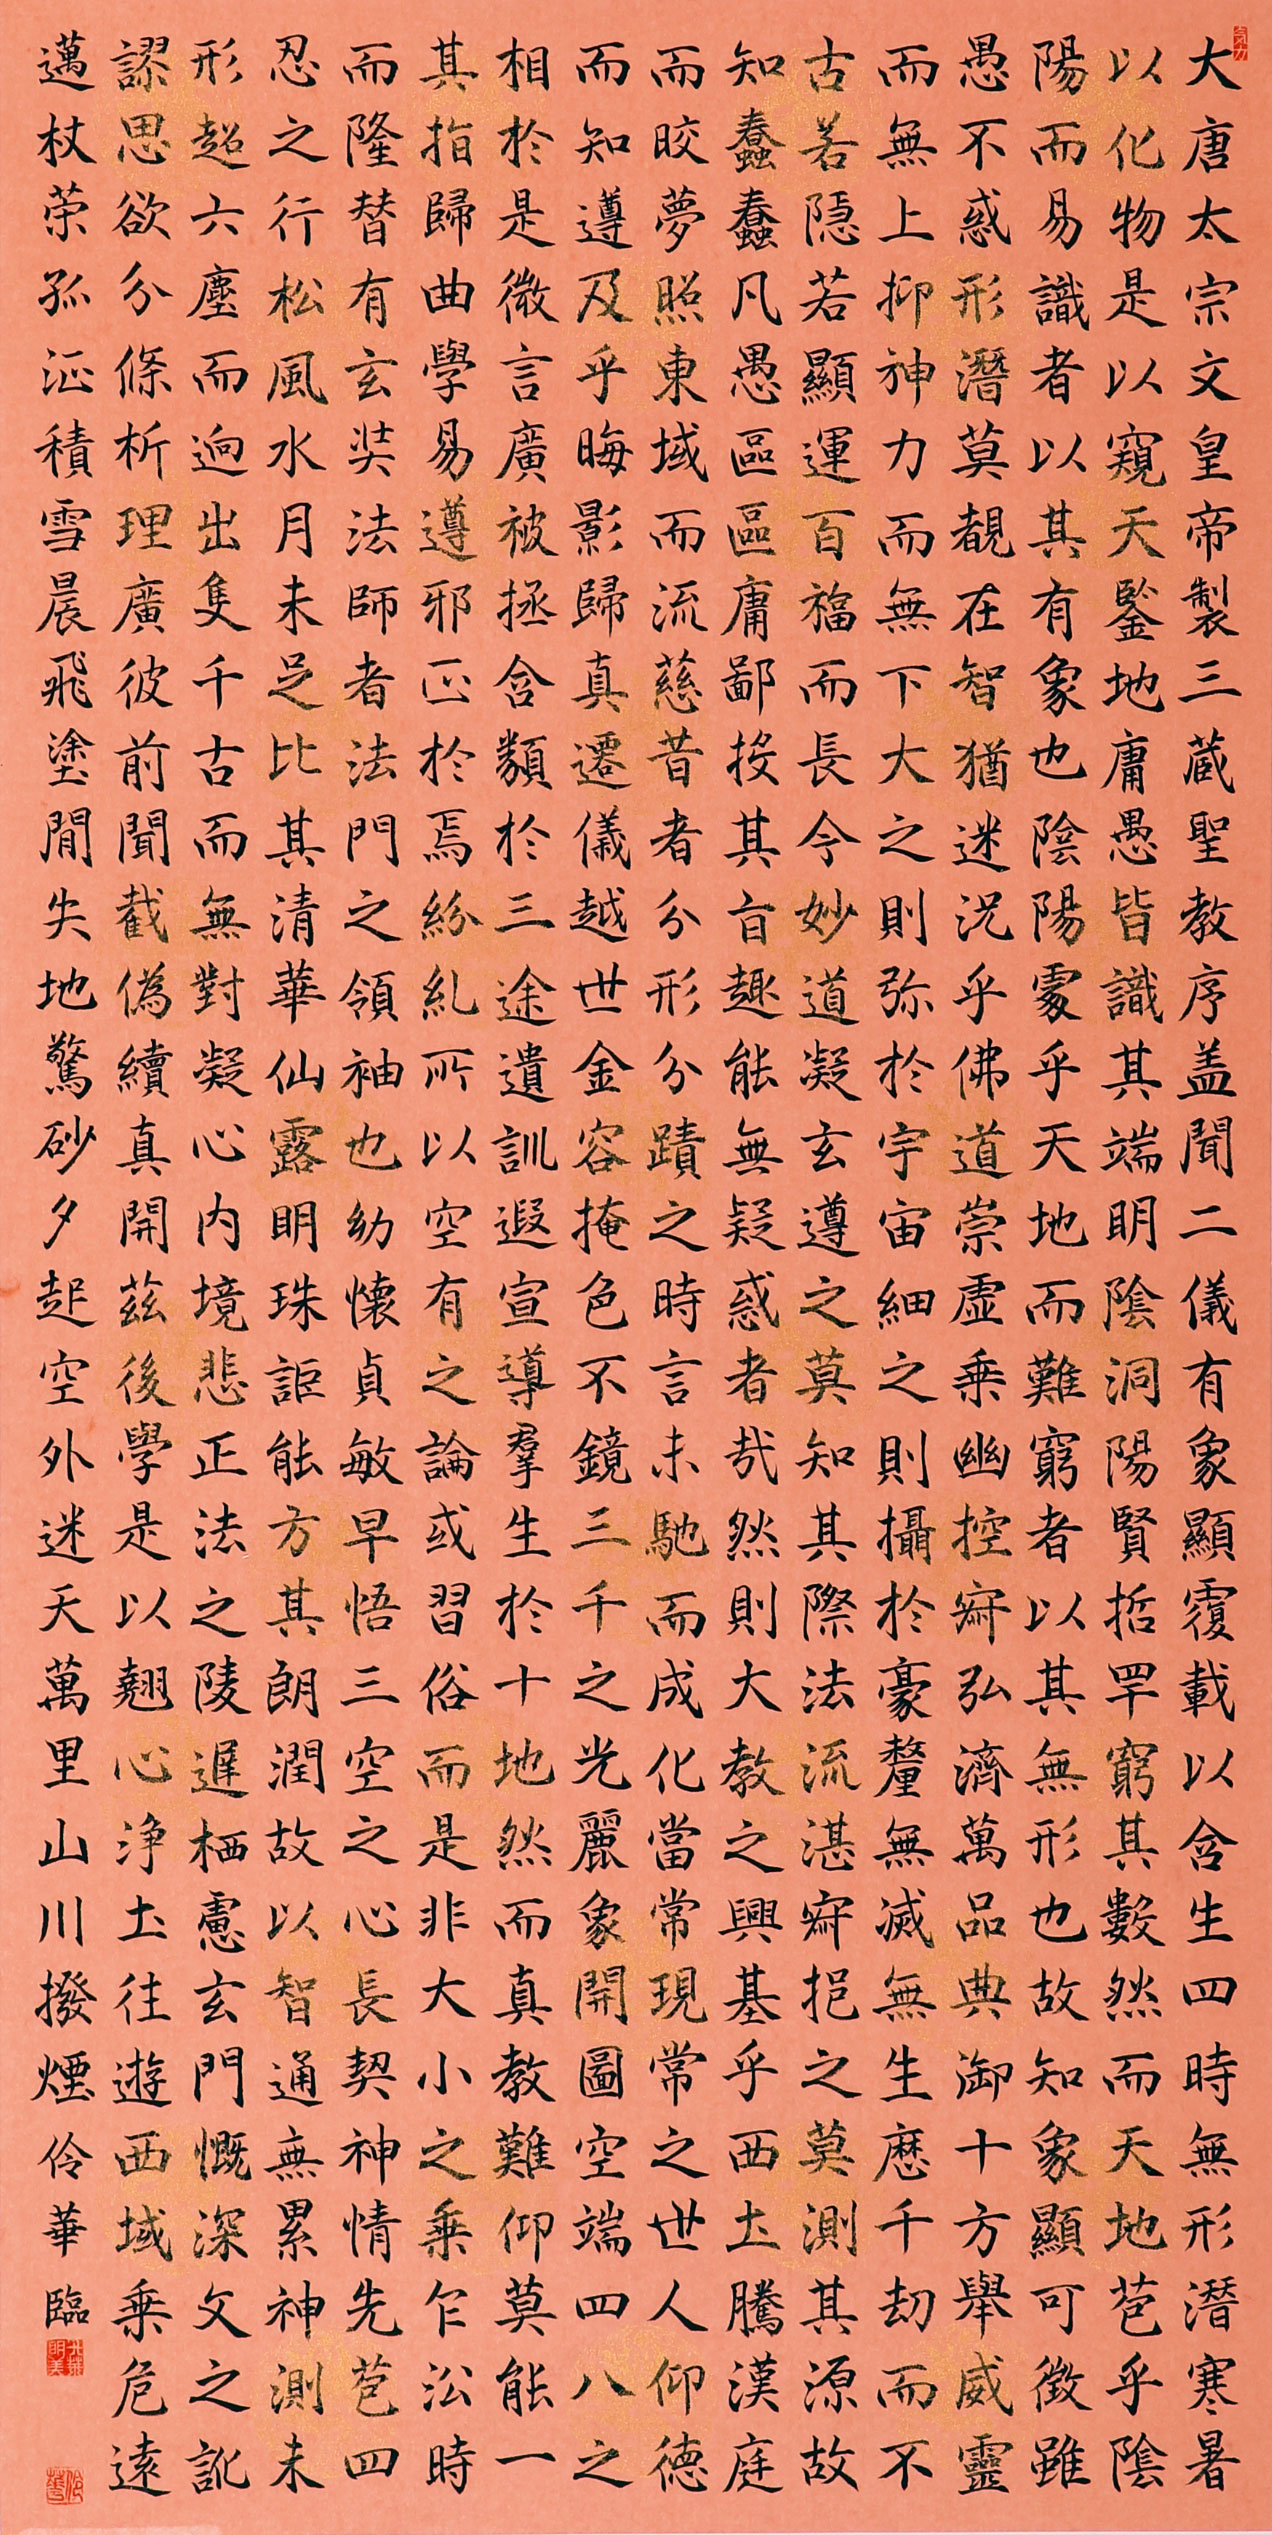 大唐太宗文皇帝製三藏聖教序盖聞二儀有象顯覆載以含生四時無形潛寒暑
以化物是以窺天鑒地庸愚皆識其端明陰洞陽賢哲罕窮其數然而天地苞乎陰
陽而易識者以其有象也陰陽處乎天地而難窮者以其無形也故知象顯可徵雖
愚不惑形潛莫覩在智猶迷況乎佛道崇虛乘幽控寂弘濟萬品典御十方舉威靈
而無上抑神力而無下大之則弥於宇宙細之則攝於豪釐無滅無生歷千劫而不
古若隱若顯運百福而長今妙道凝玄遵之莫知其際法流湛寂挹之莫測其源故
知蠢蠢凡愚區區庸鄙投其旨趣能無疑惑者哉然則大教之興基乎西土騰漢庭
而晈夢照東域而流慈昔者分形分蹟之時言未馳而成化當常現常之世人仰德
而知遵及乎晦影歸真遷儀越世金容掩色不鏡三千之光麗象開圖空端四八之
相於是微言廣被拯含類於三途遺訓遐宣導羣生於十地然而真教難仰莫能一
其指歸曲學易遵邪正於焉紛糺所以空有之論或習俗而是非大小之乘乍沿時
而隆替有玄奘法師者法門之領袖也幼懷貞敏早悟三空之心長契神情先苞四
忍之行松風水月未足比其清華仙露明珠詎能方其朗潤故以智通無累神測未
形超六塵而迥出隻千古而無對凝心内境悲正法之陵遲栖慮玄門慨深文之訛
謬思欲分條析理廣彼前聞截偽續真開茲後學是以翹心淨土往遊西域乘危遠
邁杖策孤征積雪晨飛塗閒失地驚砂夕起空外迷天萬里山川撥煙伶華臨